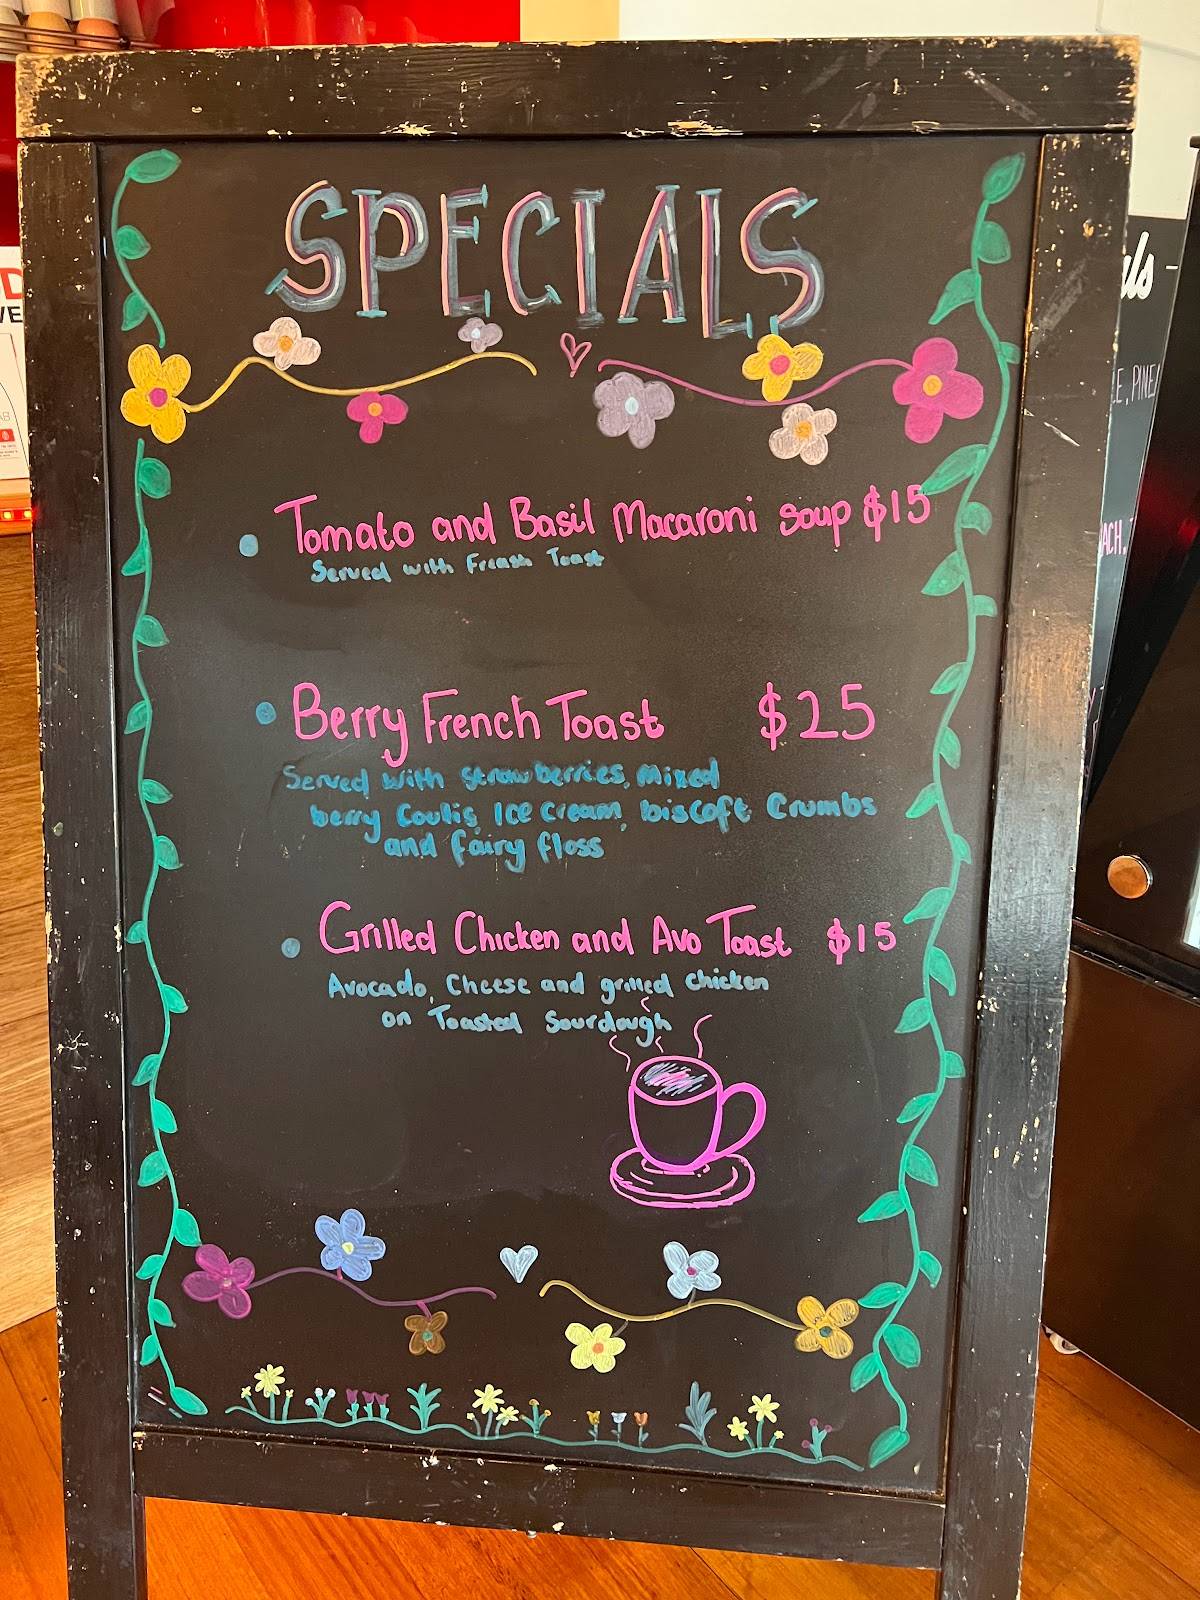 SPECIALS
Tomato and Basil Macaroni soup $15
Served with Freash Toast
Berry French Toast $25
Served with strawberries, mixed
berry Coulis, Ice cream, biscoft Crumbs
and fairy floss
Grilled Chicken and Avo Toast $15
Avocado, Cheese and grilled chicken
on Toasted Sourdough
ls
E, PINEA
ACH.